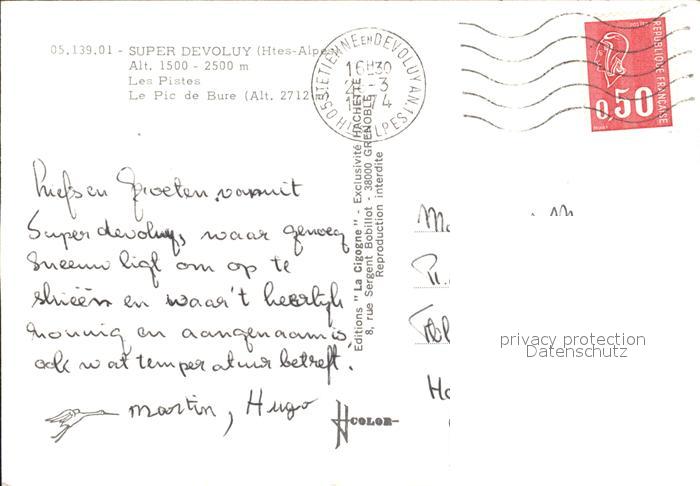 05.139.01 - SUPER DEVOLUY (Htes-Alpes
Alt. 1500 - 2500 m
Les Pistes
Le Pic de Bure (Alt. 2712
ST ETIENNE EN DEVOLUY AN. 1
16H30
4 - 3
1974
05 Htes ALPES
REPUBLIQUE FRANÇAISE
0,50
Liefs en Groeten vanuit
Superdevoluy, waar genoeg
Sneeuw ligt om op te
skieën en waar't heerlijk
zonnig en aangenaam is,
ook wat temperatuur betreft.
Martin, Hugo
Editions "La Cigogne" - Exclusivité HACHETTE
8, rue Sergent Bobillot - 38000 GRENOBLE
Reproduction interdite
COLOR
M
Ho
privacy protection
Datenschutz